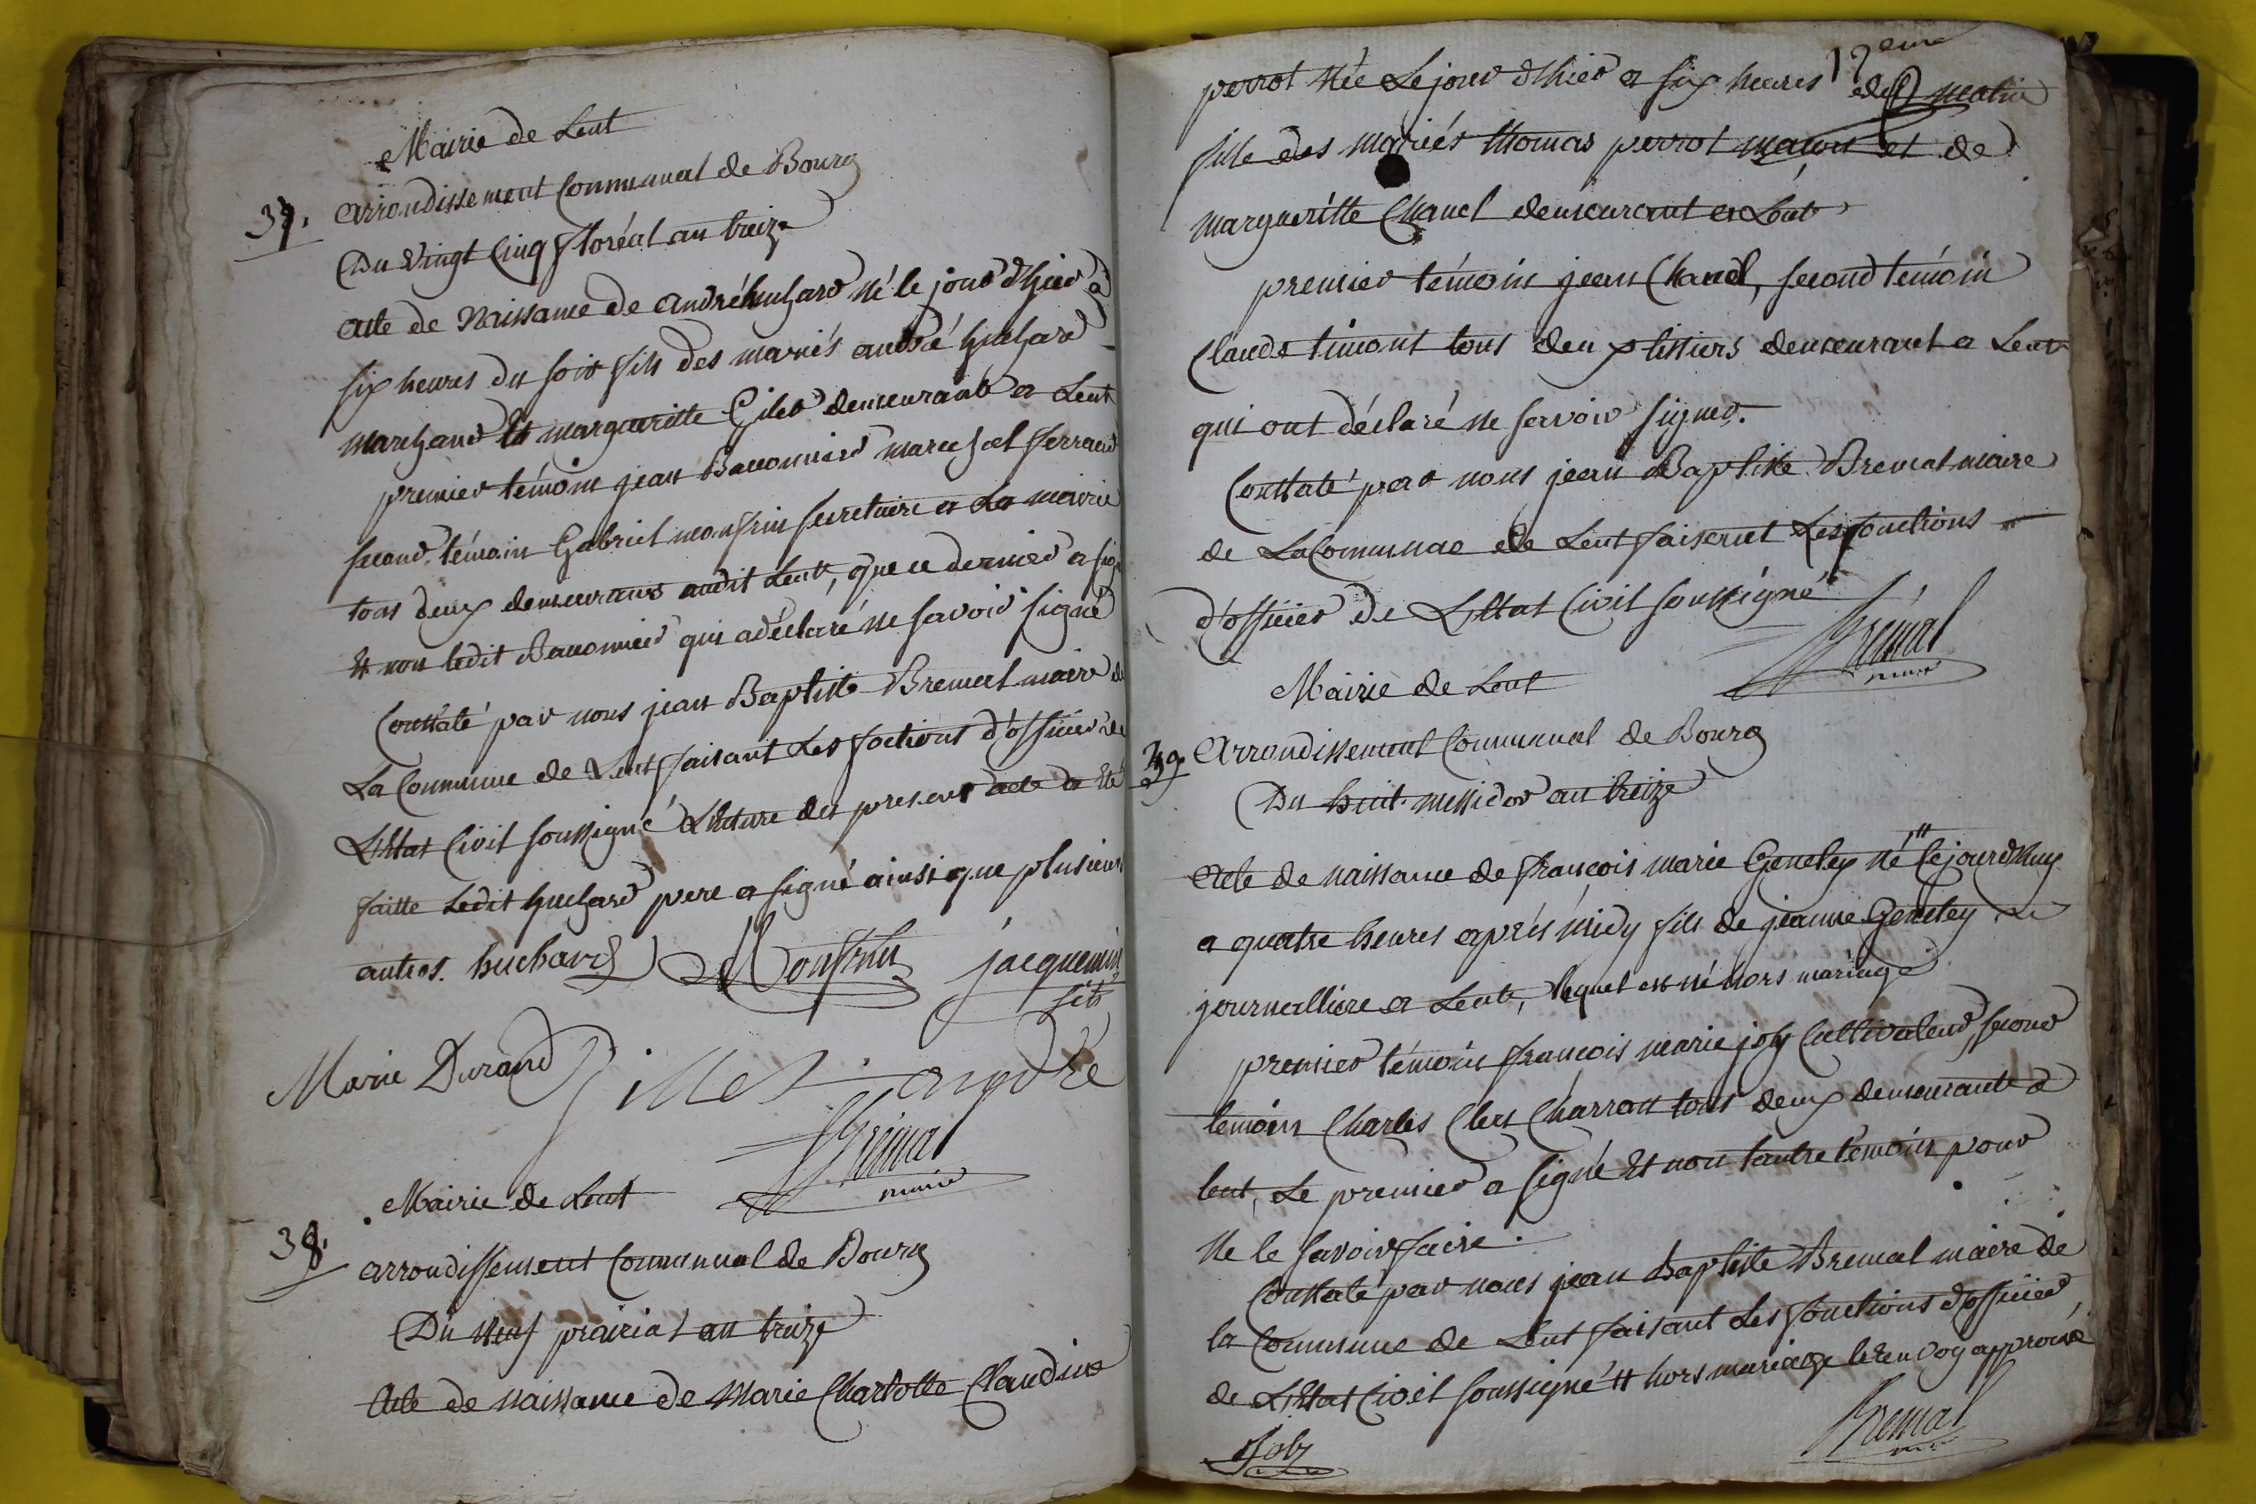 Mairie de Lent
37. arrondissement Communal de Bourg
Du vingt Cinq floréal an treize
acte de Naissance de andré huchard né le jour d'hier a
six heures du soir fils des mariés andré huchard
marchand Et margueritte Gilet demeurant a Lent
premier témoin jean Baconnier marechal ferrand
second témoin Gabriel monfrin secretaire a La mairie
tous deux demeurans audit Lent, que ce dernier a sig
Et non ledit Baconnier qui a déclaré ne savoir signé
Constaté par nous jean Baptiste Bremal maire de
La Commune de Lent faisant Les foctions d'officier de
L'Etat Civil soussigné Lecture du present acte a Eté
faitte Ledit huchard pere a signé ainsi que plusieurs
autres. huchard Monfrin jacquemin
fils
Marie Durand Gillet andré
Bremal
maire
Mairie de Lent
38. arrondissement Communal de Bourg
Du neuf prairial an treize
Acte de naissance de Marie Charlotte Claudine
19eme
perrot Née Le jour d'hier a six heures du matin
fille des mariés thomas perrot maçon et de
Margueritte Chanel demeurant a Lent
premier témoin jean Chanel, second témoin
Claude timont tous deux tissiers demeurant a Lent
qui ont déclaré ne savoir signer.
Constaté par nous jean Baptiste Bremal maire
de La Commune de Lent faisant Les fonctions
d'officier de L'Etat Civil soussigné
Bremal
maire
Mairie de Lent
39. Arrondissement Communal de Bourg
Du huit messidor an treize
Acte de naissance de françois marie Geneley né # Cejourd'huy
a quatre heures après midy fils de jeanne Geneley
journalliere a Lent, lequel est né hors mariage
premier témoin françois marie joly Cultivateur, second
temoin Charles Clerc Charron tous deux demeurant a
lent, Le premier a signé Et non l'autre témoin pour
Ne le savoir faire.
Constaté par nous jean baptiste Bremal maire de
la Commune de Lent faisant Les fonctions d'officier
de L'Etat Civil soussigné # hors mariage le renvoy approuvé
Joly Bremal
maire